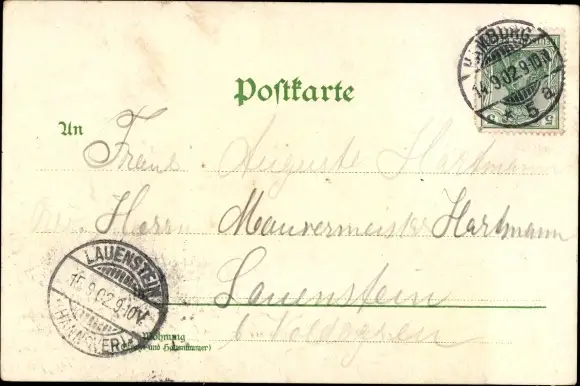 HAMBURG
14.9.02.9-10N
* 5 a.
5 5
Postkarte
An
Frau Auguste Hartmann
Herrn Mauermeister Hartmann
Lauenstein
b.
LAUENSTEIN
15.9.02.9-10V.
(HANNOVER)
Wohnung
(Straße und Hausnummer)